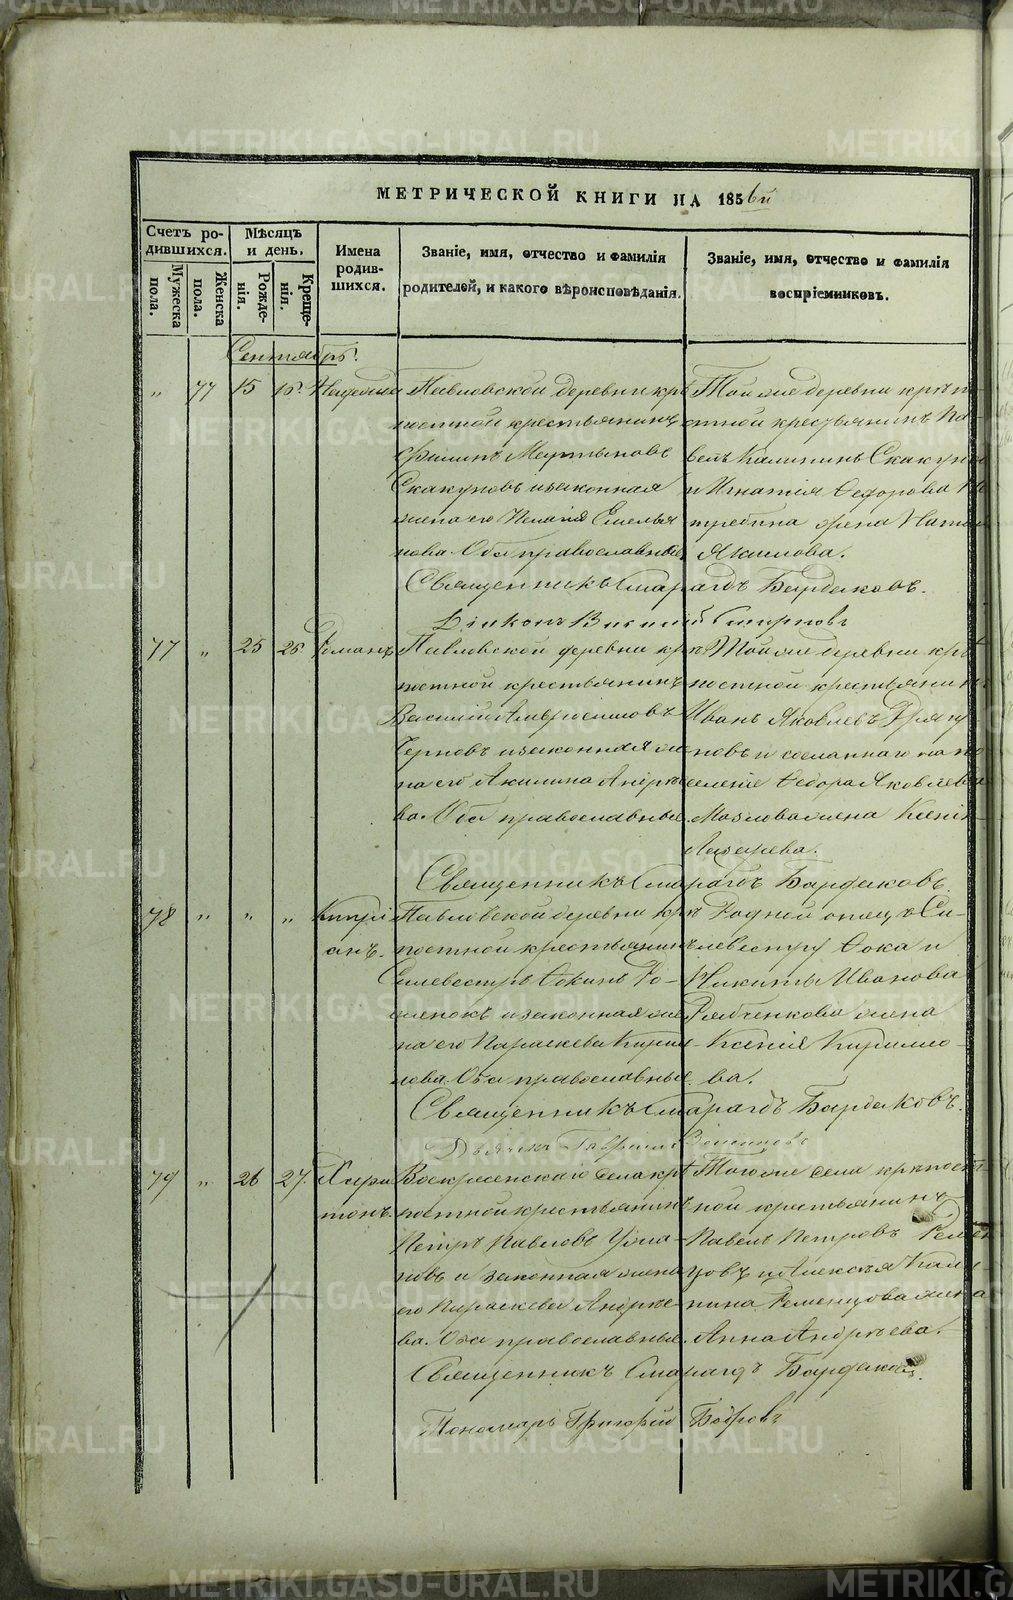 МЕТРИЧЕСКОЙ КНИГИ НА 1856й
Счетъ ро-
дившихся.
Мужеска
пола.
Женска
пола.
Мѣсяцъ
и день.
Рожде-
нія.
Креще-
нія.
Имена
родив-
шихся.
Званіе, имя, отчество и фамилія
родителей, и какого вѣроисповѣданія.
Званіе, имя, отчество и фамилія
воспріемниковъ.
Сентябрь.
„ 77 15 16.
Павловской деревни крѣ
постной крестьянинъ
Филипъ Мартыновъ
Скакуновъ и законная
жена его Пелагія Емелья
нова. Оба православные.
Той же деревни крѣпо
стной крестьянинъ Па
велъ Калининъ Скакуновъ
и Игнатія Ѳедорова
требина жена
Якимова.
Священникъ Смарагдъ Бардаковъ.
Діаконъ Василій Смирновъ
77 „ 25 26 Романъ
Павловской деревни крѣ
постной крестьянинъ
Василій Амвросимовъ
Черновъ и законная же
на его Акилина Андрѣе
ва. Оба православные.
Той же деревни крѣ
постной крестьянинъ
Иванъ Яковлевъ
новъ и сосланнаго на по
селеніе Ѳедора Яковлева
жена Ксенія
Лазарева.
Священникъ Смарагдъ Бардаковъ.
78 „ „ „ Кипрі
анъ.
Павловской деревни крѣ
постной крестьянинъ
Силевестръ Ѳокинъ Ро-
менокъ и законная же
на его Параскева Кирил
лова. Оба православные.
Родной отецъ Си-
левестру Ѳока и
Никиты Иванова
Рябченкова жена
Ксенія Кирилло-
ва.
Священникъ Смарагдъ Бардаковъ.
Дьячекъ Гавріилъ
79 „ 26 27. Хари
тонъ.
Воскресенскаго села крѣ
постной крестьянинъ
Петръ Павловъ
новъ и законная жена
его Параскева Андрѣе-
ва. Оба православные.
Того же села крѣпост
ной крестьянинъ
Павелъ Петровъ Ремен
цовъ и Алексѣя Кали-
нина Ременцова жена
Анна Андрѣева.
Священникъ Смарагдъ Бардаковъ.
Пономарь Григорій Бобровъ
METRIKI.GASO-URAL.RU